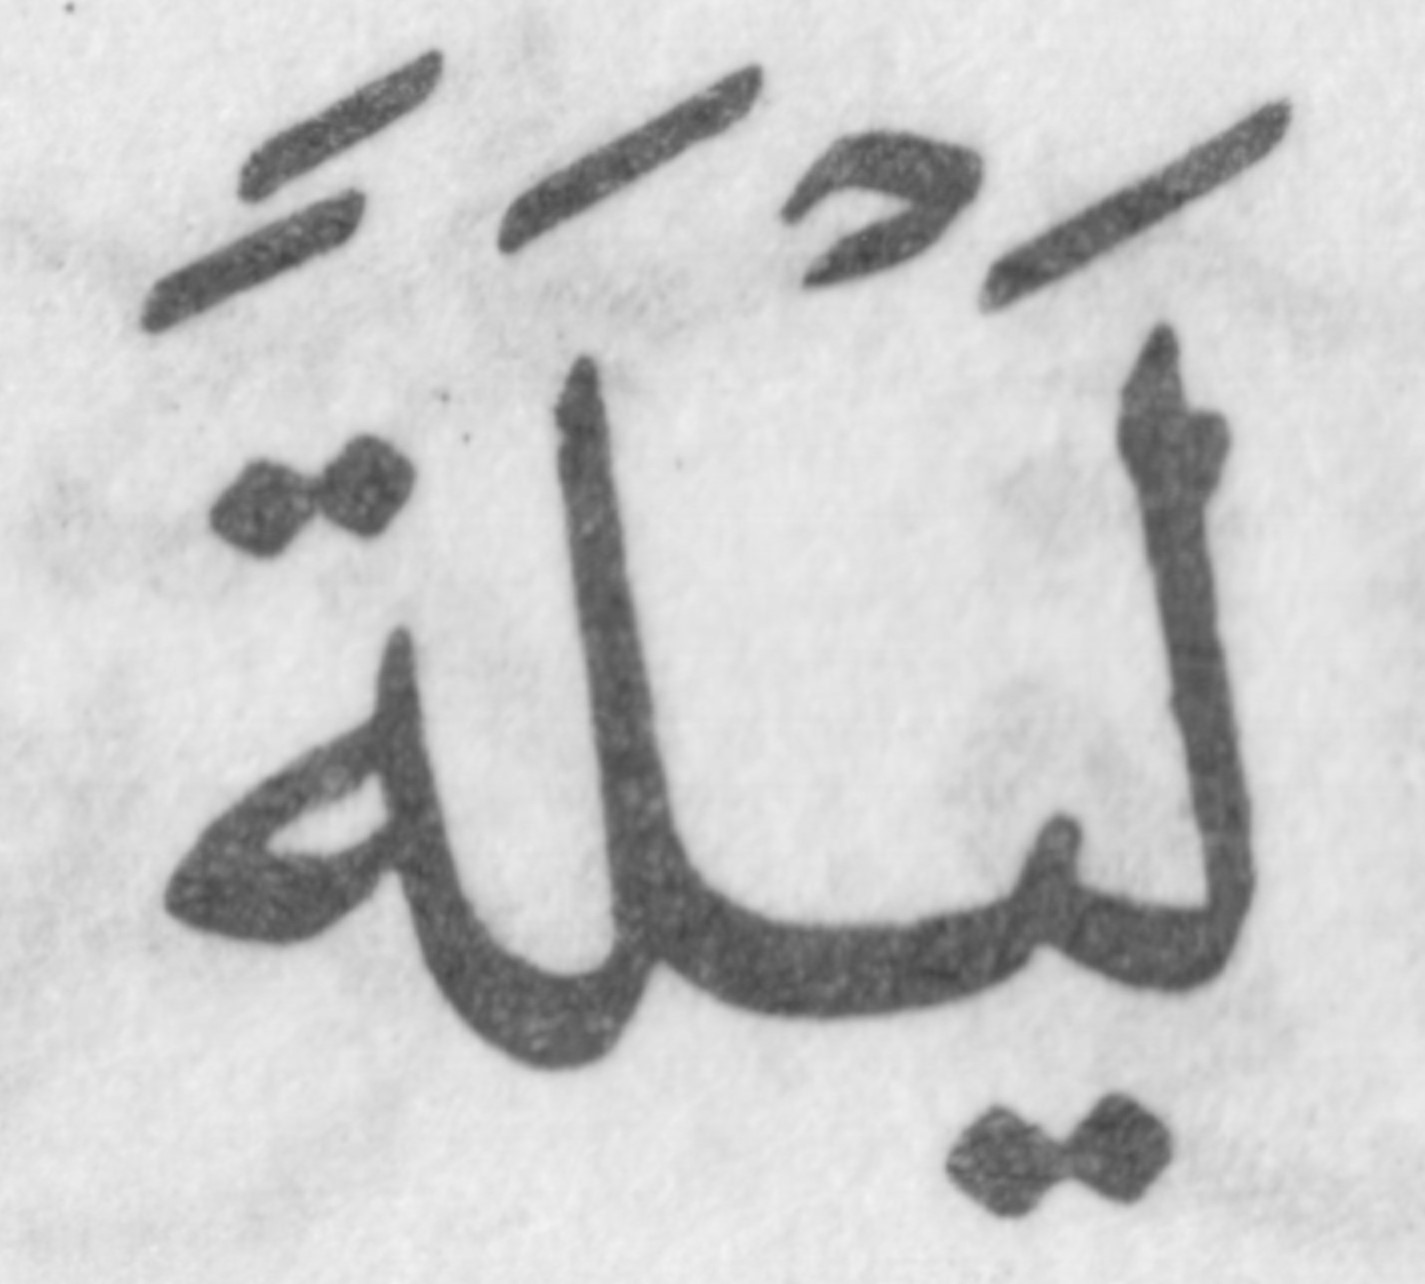 لَيْلَةً